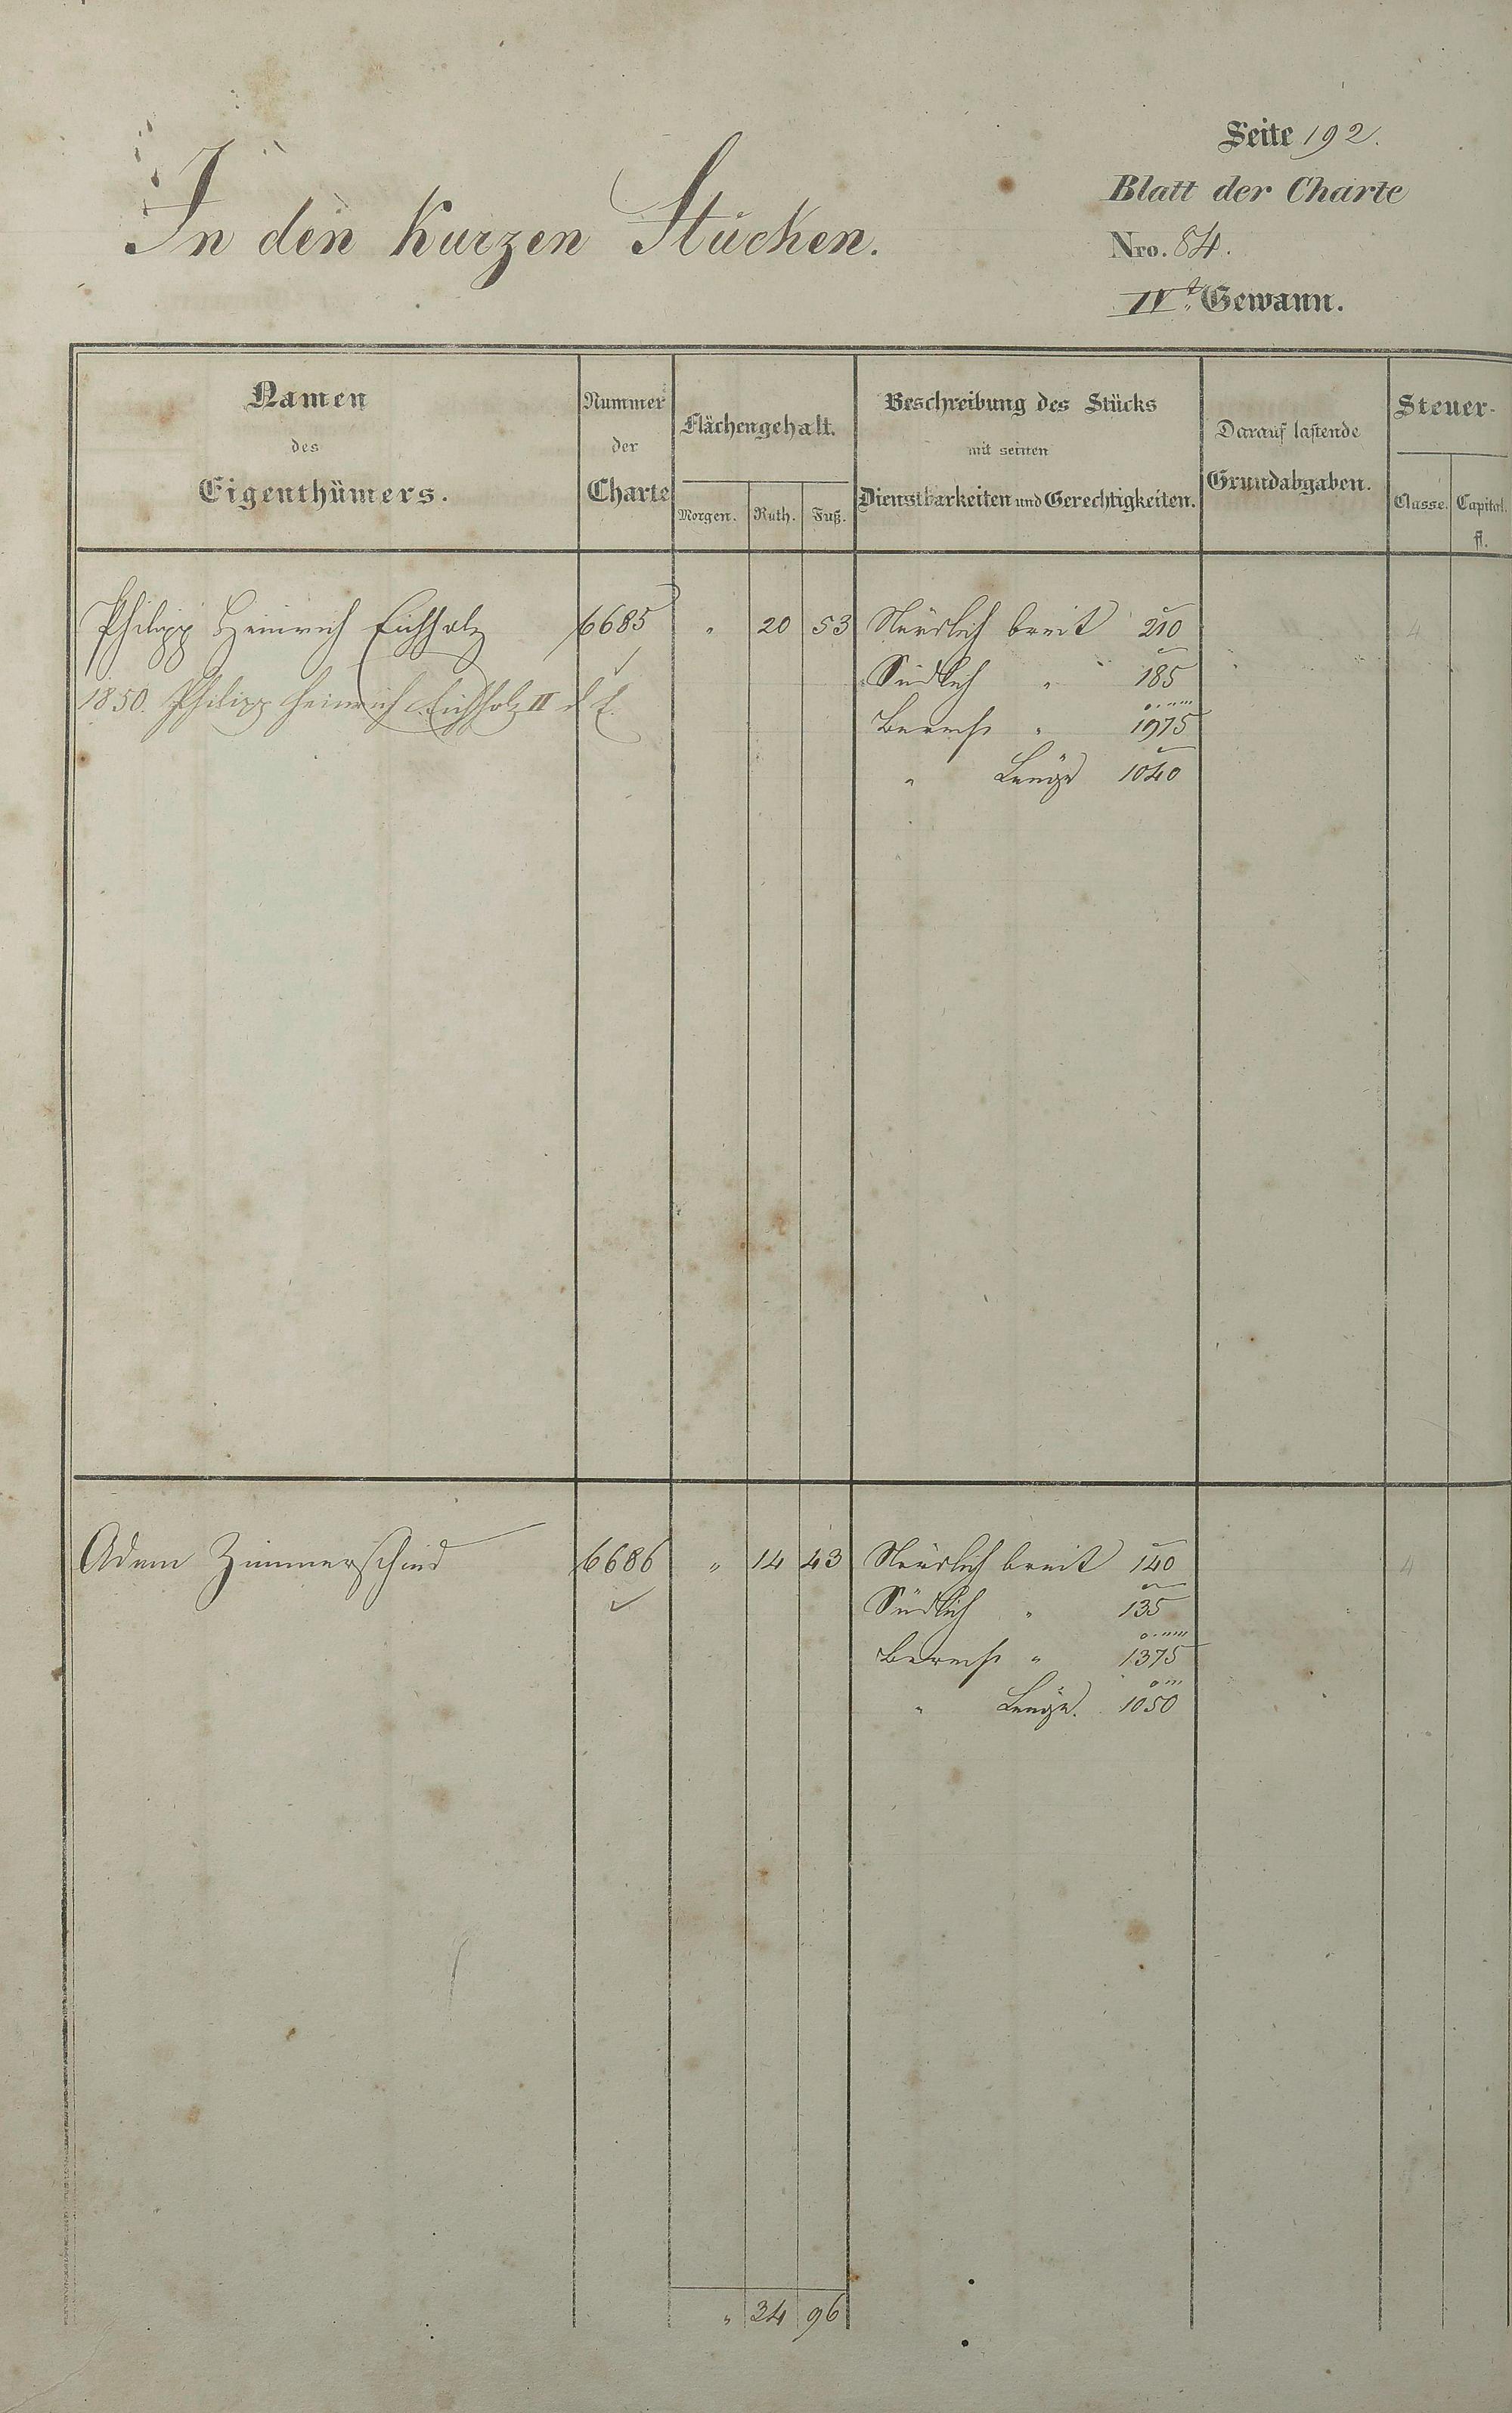 Seite 192.
Blatt der Charte
In den Kurzen Stücken.
Nro. 84.
IVt. Gewann.
Namen des Eigenthümers.
Nummer der Charte
Flächengehalt.
Morgen. Ruth. Fuß.
Beschreibung des Stücks
mit seinen
Dienstbarkeiten und Gerechtigkeiten.
Darauf lastende
Grundabgaben.
Steuer-
Classe. Capital.
fl.
Philipp Heinrich Eichholz 6685 " 20 53 Nördlich breit 210 4
Südlich " 185
1850. Philipp Heinrich Eichholz II
Berechn " 1975
" Länge 1040
Adam Zimmerschied 6686 " 14 43 Nördlich breit 140 4
Südlich " 135
Berechn " 1375
" Länge. 1050
" 34 96